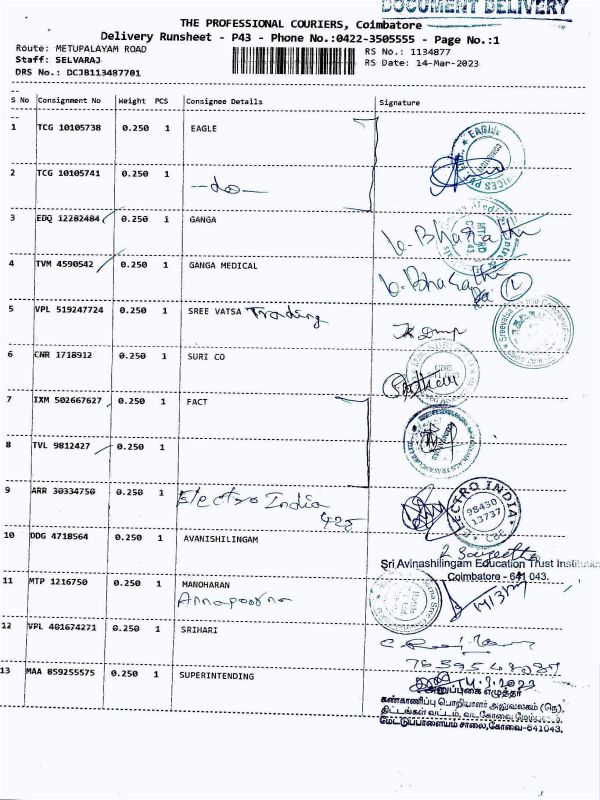 DOCUMENT DELIVERY
THE PROFESSIONAL COURIERS, Coimbatore
Delivery Runsheet - P43 - Phone No.:0422-3505555 - Page No.:1
Route: METUPALAYAM ROAD RS No.: 1134877
Staff: SELVARAJ RS Date: 14-Mar-2023
DRS No.: DCJB113487701
S No Consignment No Weight PCS Consignee Details Signature
1 TCG 10105738 0.250 1 EAGLE
2 TCG 10105741 0.250 1 -do-
3 EDQ 12282484 0.250 1 GANGA
4 TVM 4590542 0.250 1 GANGA MEDICAL
5 VPL 519247724 0.250 1 SREE VATSA Trading
6 CNR 1718912 0.250 1 SURI CO
7 IXM 502667627 0.250 1 FACT
8 TVL 9812427 0.250 1
9 ARR 30334750 0.250 1 Electro India
425
ELECTRO INDIA
98430
13737
CBE
10 DDG 4718564 0.250 1 AVANISHILINGAM
Sri Avinashilingam Education Trust Institutes
Coimbatore - 641 043.
11 MTP 1216750 0.250 1 MANOHARAN
Annapoorna
12 VPL 401674271 0.250 1 SRIHARI
13 MAA 859255575 0.250 1 SUPERINTENDING
14.3.2023
அனுப்புகை எழுத்தர்
கண்காணிப்பு பொறியாளர் அலுவலகம் (நெ).
திட்டங்கள் வட்டம்,
மேட்டுப்பாளையம் சாலை,கோவை-641043.